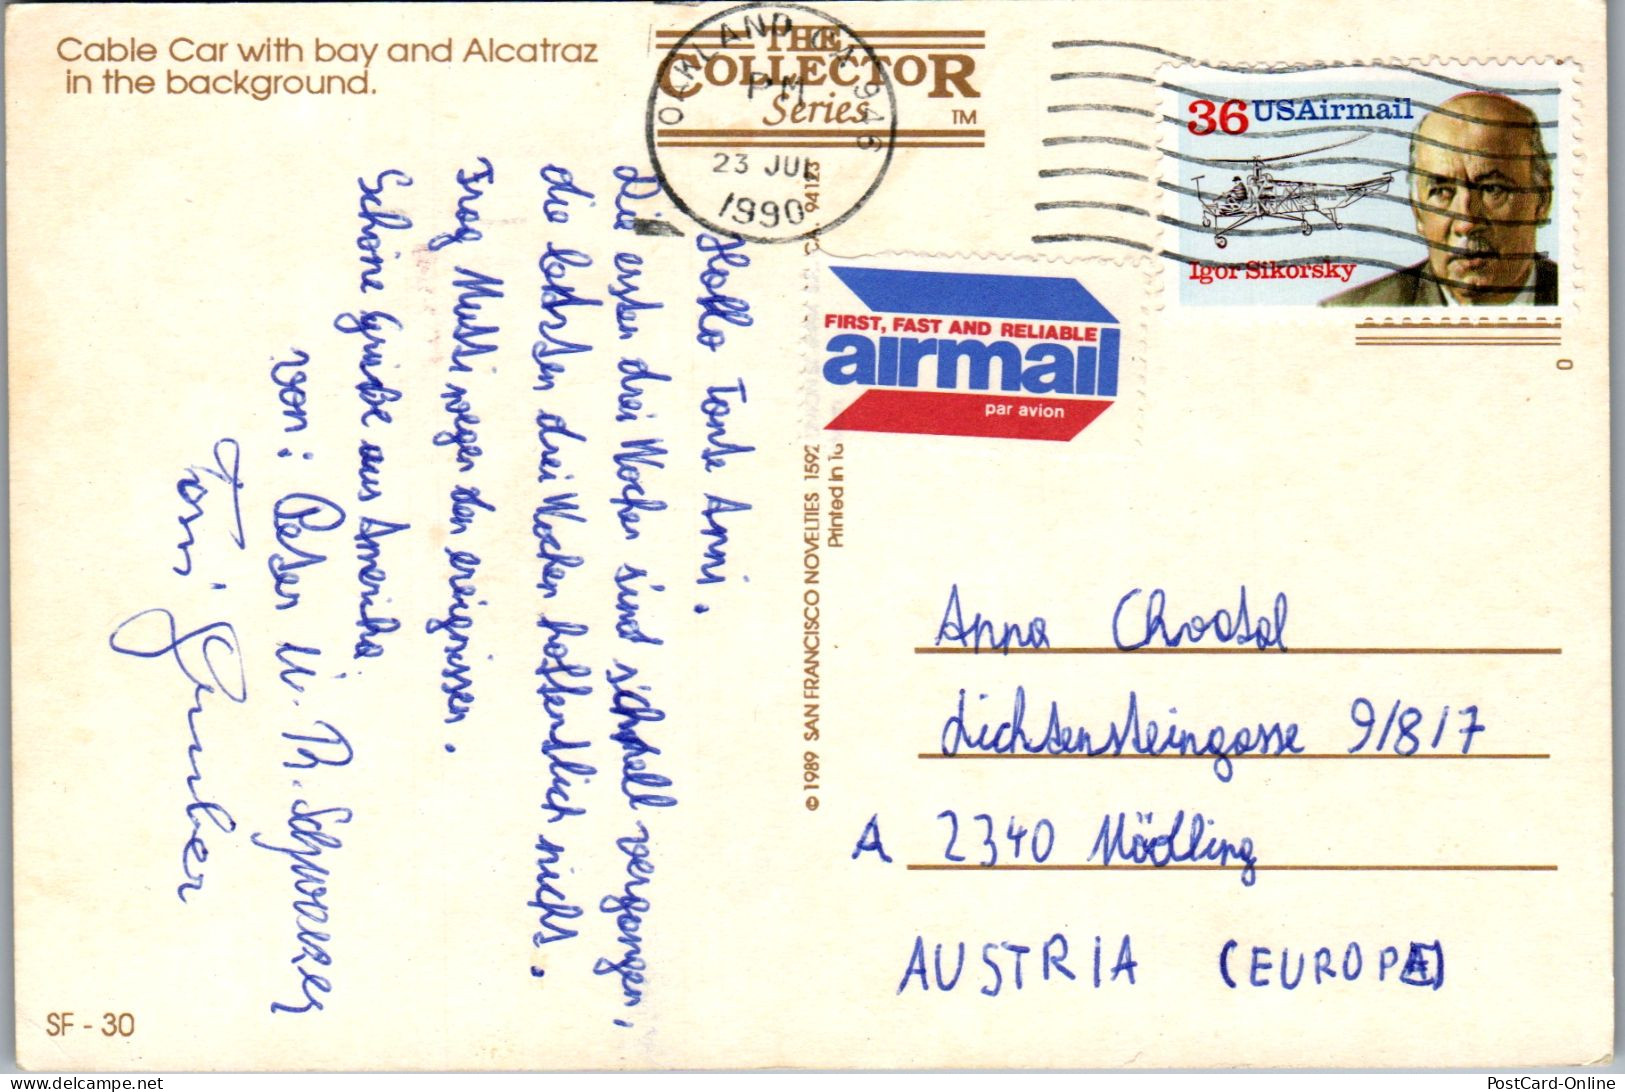 Cable Car with bay and Alcatraz
in the background.
THE
COLLECTOR
Series
TM
OAKLAND CA 946
PM
23 JUL
1990
36 USAirmail
Igor Sikorsky
FIRST, FAST AND RELIABLE
airmail
par avion
0
Hallo Tante Anni.
Die ersten drei Wochen sind schnell vergangen,
die letzten drei Wochen hoffentlich nicht.
Frag Mutti wegen den ereignissen.
Schöne Grüße aus Amerika
von: Peter u. Th.
Toni
© 1989 SAN FRANCISCO NOVELTIES 1592
94123
Printed in
Anna
Lichtensteingasse 9/8/7
A 2340 Mödling
AUSTRIA (EUROPE)
SF - 30
PostCard-Online